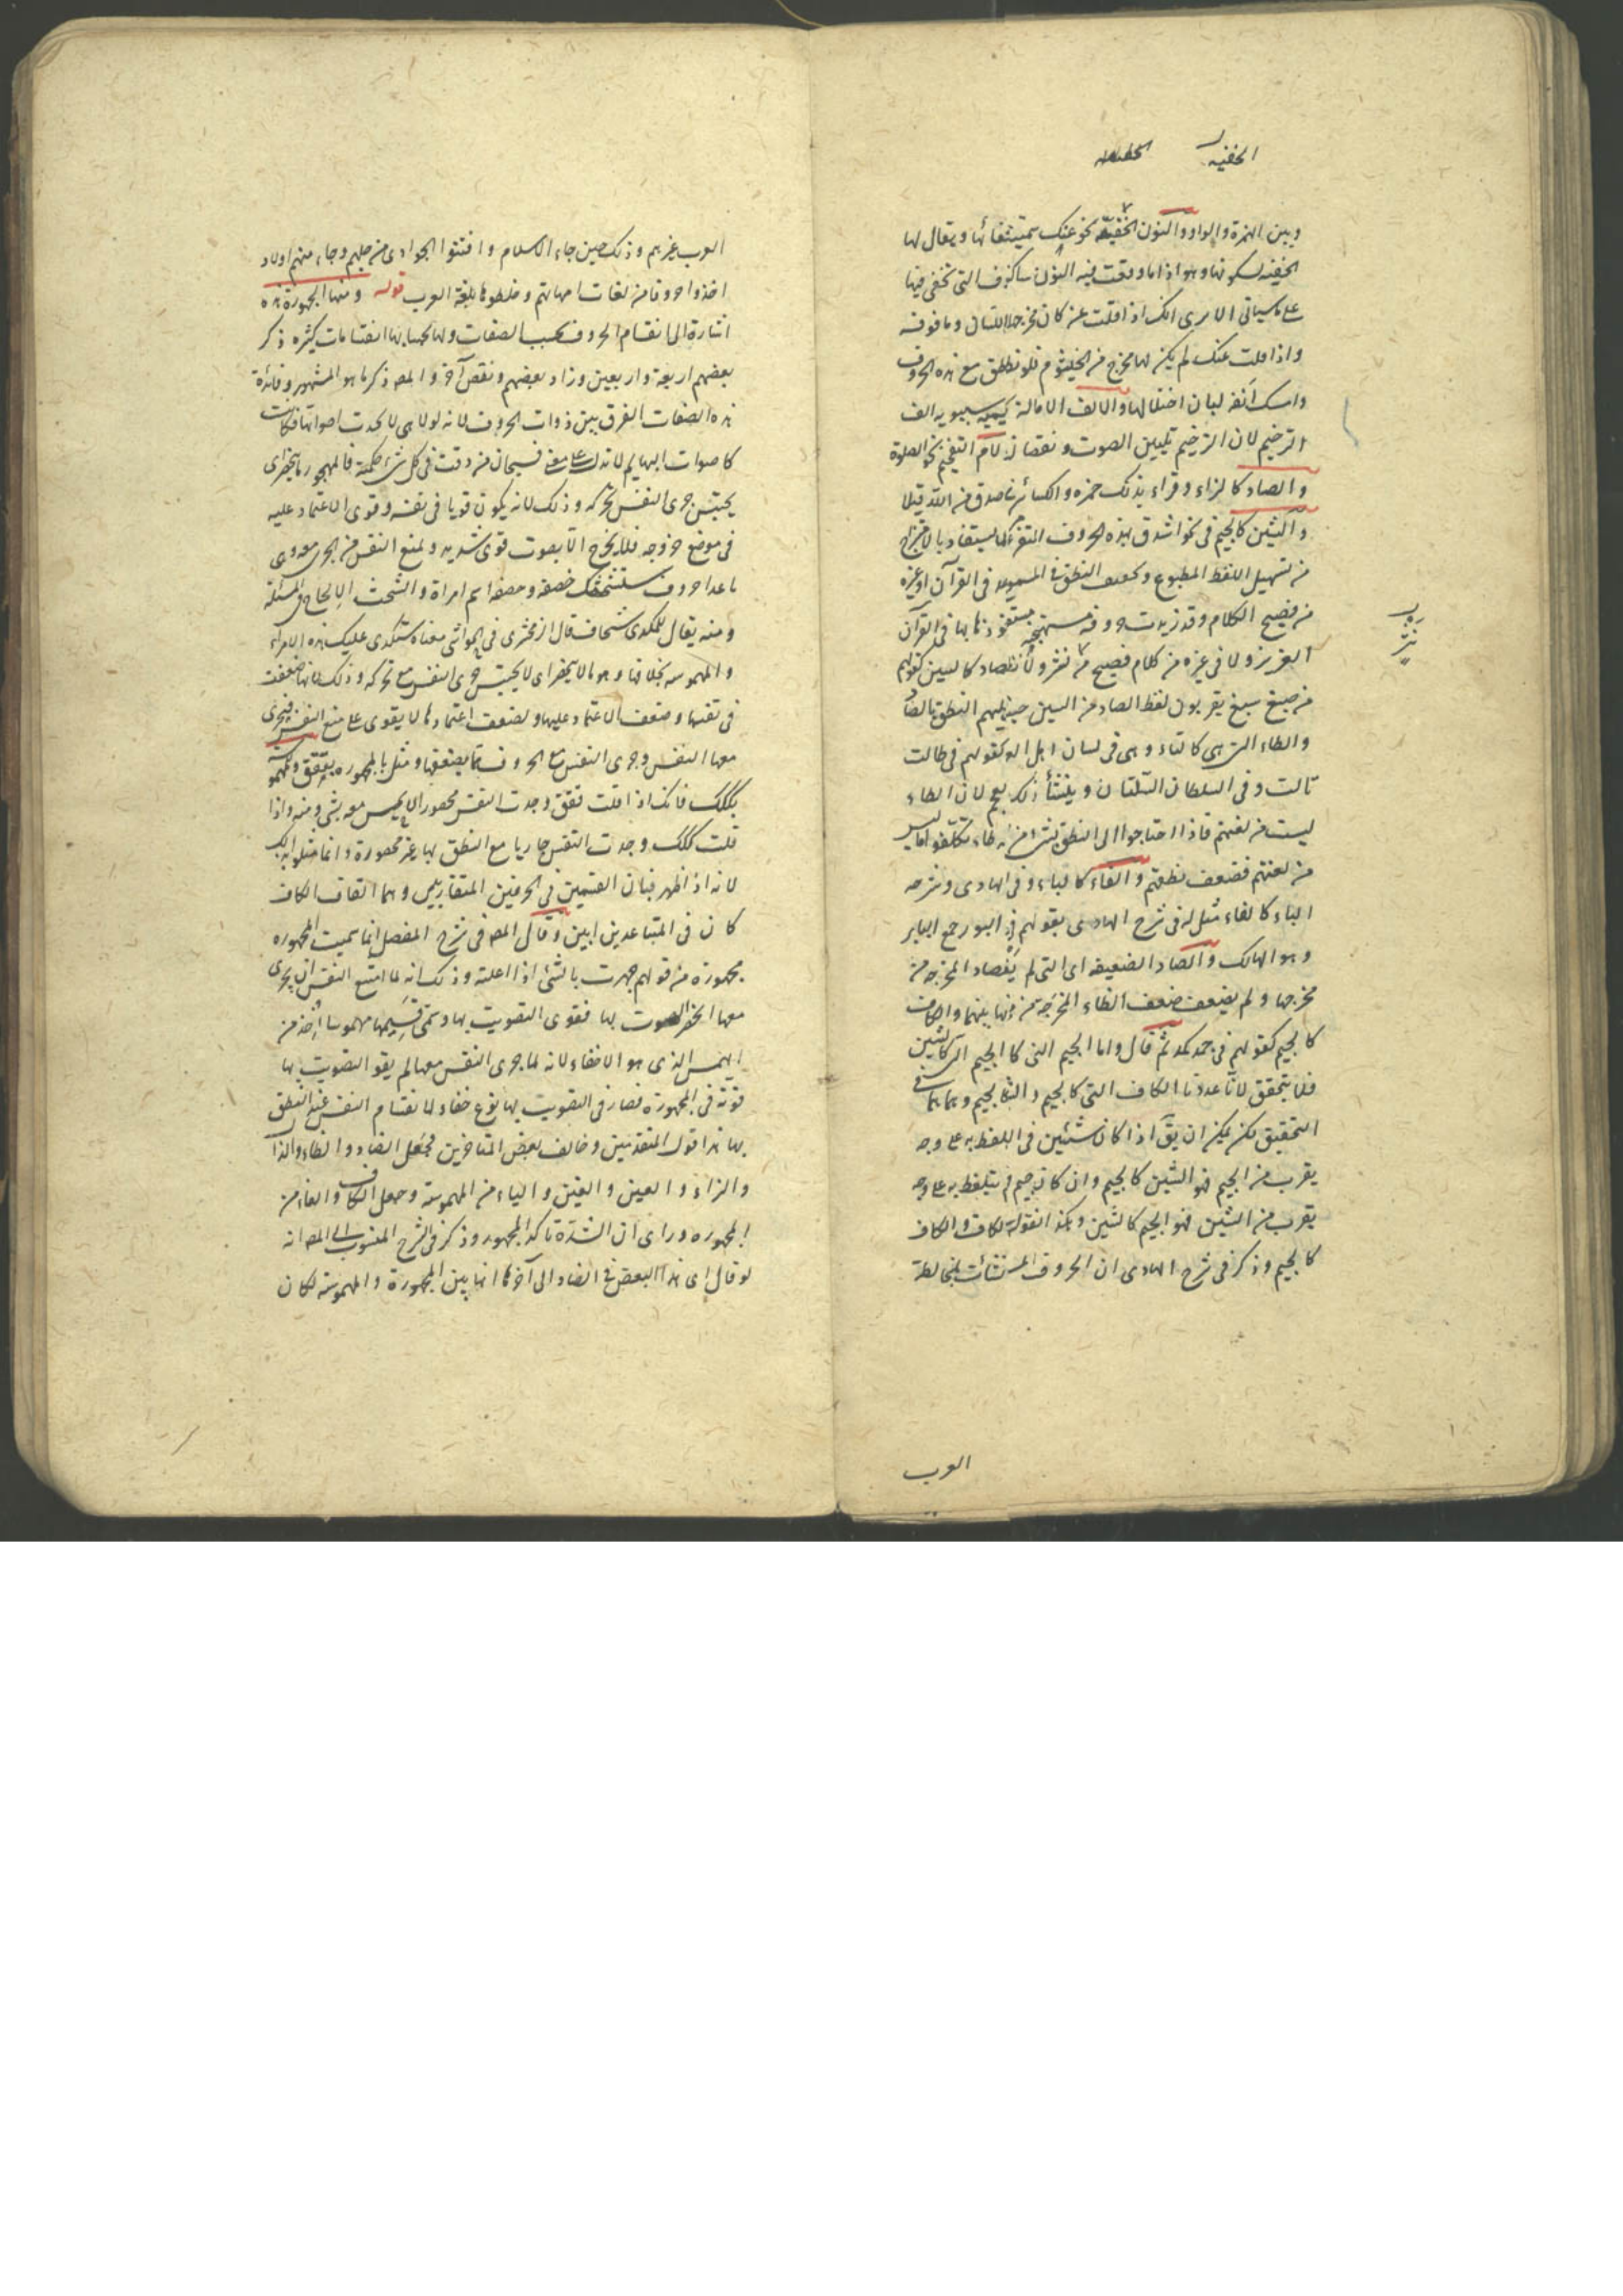 الخفيه
وبين الهمزة والواو والنون الخفية نحو عنك سميت خفائها ويقال لها
الخفية لسكونها وهو اذا ما وقعت فيه النون ساكنة التى تخفى فيها
على ما سياتى الا ترى انك اذا قلت عن كان مخرجها اللسان وما فوقه
واذا قلت عنك لم يكن لها مخرج من الخيشوم فلو نطق مع هذه الحروف
وامسك انفه لبان اختلالها والالف الامالة يسميه سيبويه الف
الترخيم لان الترخيم تليين الصوت ونقصانه ولام التفخيم نحو الصلوة
والصاد كالزاء وقراء بذلك حمزه والكسائى من اصدق من الله قيلا
والشين كالجيم فى نحو اشدق بهذه الحروف يستفاد بالامتزاج
من تسهيل اللفظ المطبوع النطق المسموعه فى القرآن او غيره
من فصيح الكلام وقد زيدت حروف مستهجنة بها فى القرآن
العزيز ولا فى غيره من كلام فصيح من نثر ونظم الصاد كالسين كقولهم
من صبغ سبغ يقربون لفظ الصاد من السين النطق بالصاد
والطاء التى هى كالتاء وهى فى لسان اهل كقولهم فى طالت
تالت وفى السلطان السلتان وينشأ ذلك لان الطاء
ليست من لغتهم فاذا احتاجوا الى النطق بشئ فيه طاء تكلفوا ما ليس
من لغتهم فضعف نطقهم والفاء كالباء وفى الهادى وشرحه
الباء كالفاء مثل له فى شرح الهادى بقولهم فى البور جمع البابر
وهو الهالك والضاد الضعيفه اى التى لم المخرجه من
مخرجها ولم يضعف ضعف الظاء المخرجه من بينهما والكاف
كالجيم كقولهم فى جمد كمد ثم قال واما الجيم التى كالجيم التى كالشين
فلا يتحقق لانا عددنا الكاف التى كالجيم والشين كالجيم وهما هما فى
التحقيق لكن يمكن ان يق اذا كان شئين فى اللفظ به على وجه
يقرب من الجيم فهو الشين كالجيم وان كان جيم يتلفظ به على وجه
يقرب من الشين فهو الجيم كالشين وهكذا نقوله كالكاف والكاف
كالجيم وذكر فى شرح الهادى ان الحروف المستنشات لمخالطة
العرب
العرب غيرهم وذلك حين جاء الاسلام واقتنوا الجوارى من جليهم وجاء منهم اولاد
اخذوا حروفا من لغات امهاتهم وخلطوها بلغة العرب قوله ومنها المجهورة هذه
اشارة الى انقسام الحروف بحسب الصفات ولها بحسبها انقسامات كثيره ذكر
بعضهم اربعة واربعين وزاد بعضهم ونقص آخر والمص ذكر ما هو المشهور وفائدة
هذه الصفات الفرق بين ذوات الحروف لانه لولا هى لاتحدت اصواتها فكانت
كاصوات البهايم لا تدل على معنى فسبحان من دقت فى كل شئ حكمته فالمجهور ما ينحصر اى
يحتبس جرى النفس بتحركه وذلك لانه يكون قويا فى نفسه وقوى الاعتماد عليه
فى موضع خروجه فلا يخرج الا بصوت قوى شديد ويمنع النفس من الجرى معه وهى
ما عدا حروف ستشحثك خصفه وخصفه اسم امراة والشحث الالحاح فى المسئلة
ومنه يقال للمكدى شحاث قال الزمخشرى فى الحواشى معناه ستكدى عليك هذه المراة
والمهموسه بخلافها وهو ما لا ينحصر اى لا يحتبس جرى النفس مع تحركه وذلك لانها ضعفت
فى نفسها وضعف الاعتماد عليها ولضعف اعتمادها لا يقوى على منع النفس فيجرى
معها النفس وجرى النفس مع الحروف مما يضعفها ومثل المجهوره بققق والمهموسة
بككك فانك اذا قلت ققق وجدت النفس محصورا لا يحس معه بشئ منه واذا
قلت ككك وجدت النفس جاريا مع النطق بها غير محصورة وانما مثلوا بذلك
لانه اذا ظهر تباين القسمين فى الحرفين المتقاربين وهما القاف والكاف
كان فى المتباعدين ابين وقال المص فى شرح المفصل انما سميت المجهوره
مجهورة من قولهم جهرت بالشئ اذا اعلنته وذلك انه لما امتنع النفس ان يجرى
معها انحصر الصوت بها فقوى التصويت بها وسمى قسيمها مهموسا اُخذ من
الهمس الذى هو الاخفاء لانه لما جرى النفس معها لم يقو التصويت بها
قوته فى المجهورة فصار فى التصويت بها نوع خفاء لانقسام النفس عند النطق
بها هذا قول المتقدمين وخالف بعض المتاخرين فجعل الضاد والظاء والذال
والزاء والعين والغين والياء من المهموسة وجعل الكاف والتاء من
المجهوره وراى ان الشدة تاكد المجهور وذكر فى الشرح المنسوب الى المص انه
لو قال اى هذا البعض فى الضاد الى آخرها انها بين المجهورة والمهموسة لكان